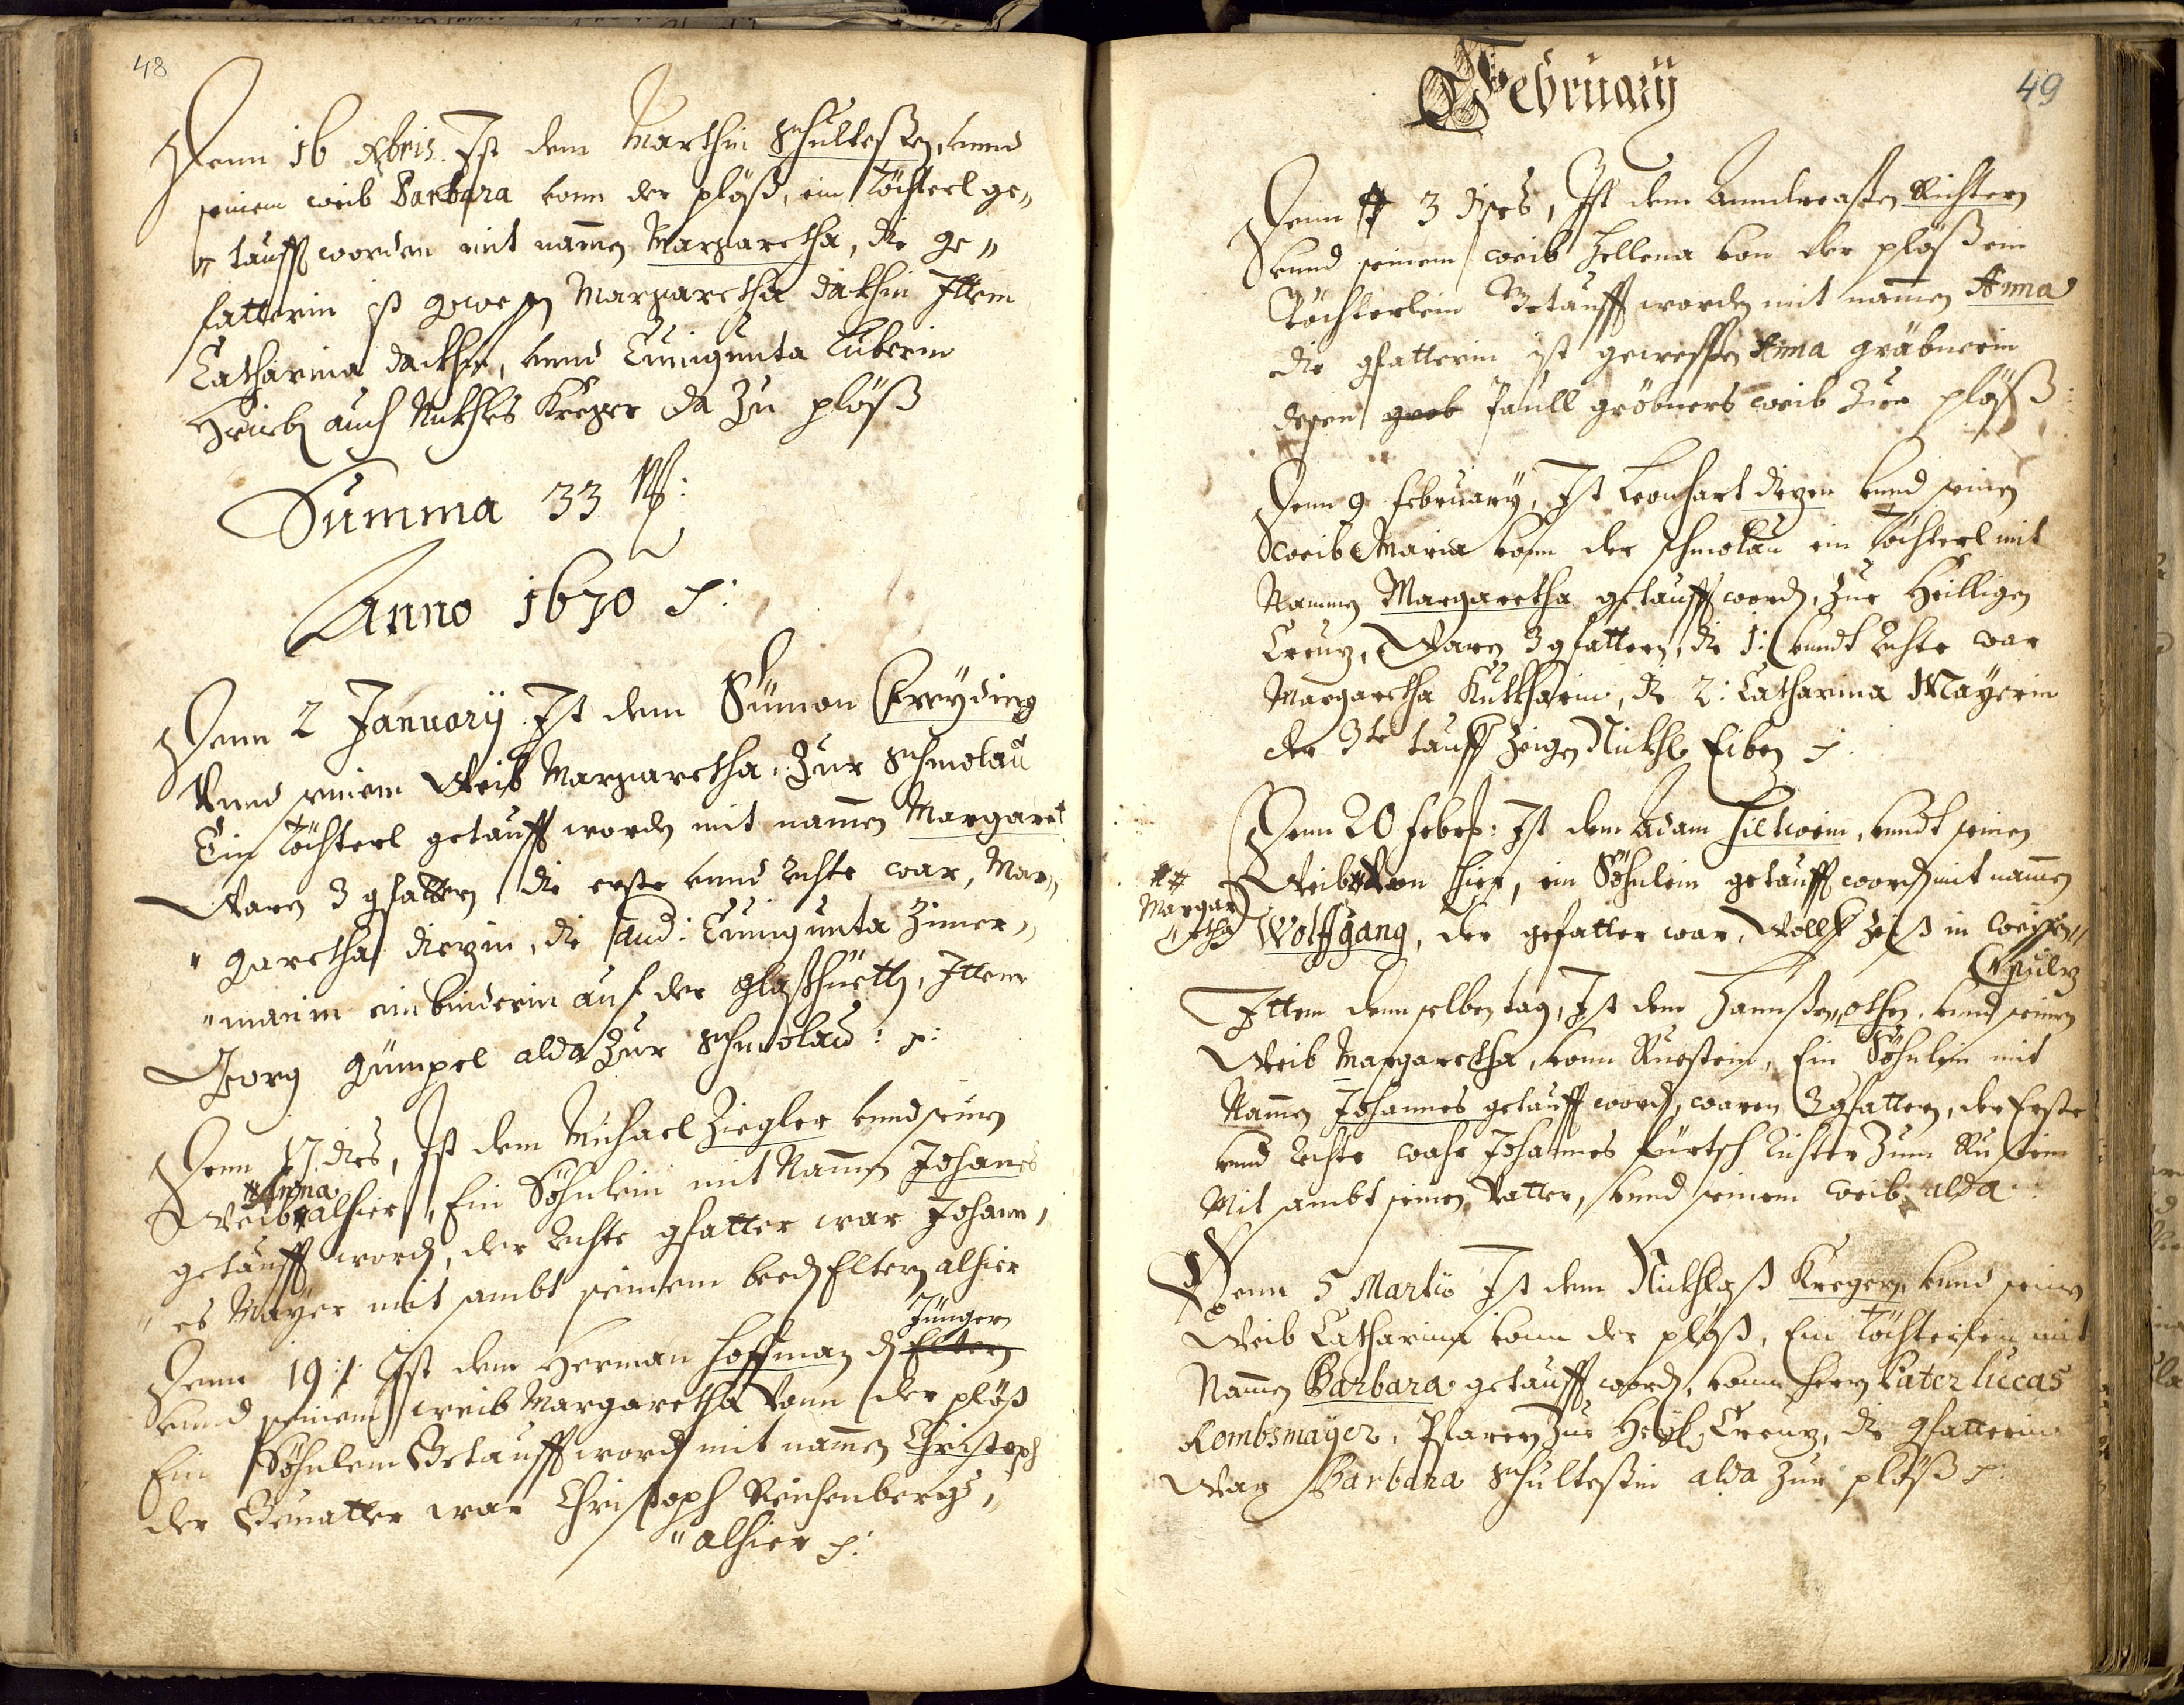 48
Denn 16 Xbris. Ist dem Marthin Schulteßen, vnnd
seinem weib Barbara vonn der plöß, ein Töchterl ge„
„ taufft worden mit namen Margaretha, die ge„
fatterin ist gewesen Margaretha Ittem
Catharina vnnd Cunigunta
auch Kreger da Zu plöß
Summa 33
Anno 1670
Denn 2 January. Ist dem Simon Freyding
Vnnd seinem Weib Margaretha. Zur Schmolau
Ein Töchterl getaufft worden mit namen Margaret
Waren 3 gfattern die erste vnnd rechte war, Mar„
„ garetha diezin, die and: Cunigunta Zimer„
„ manin ein binderin auf der glaßhüetten, Ittem
Georg Gümpel alda Zur Schmolau:
Denn 17. dies, Ist dem Michael Ziegler vnnd seinen
Anna
Weib alhier, Ein Söhnlein mit Namen Johanes
getaufft worden, der rechte gfatter war Johann„
„ es Mayer mit sambt seinem beeden Eltern alhier
Jüngern
Denn 19: Ist dem Herman Hoffman Eltern
vnnd seinem weib Margaretha Vonn der plöß
Ein Söhnlein Getaufft worden mit namen Christoph
der Geuatter war Christoph Reichenberger„
„ alhier
February
49
Denn 3 dises, Ist dem Anndreaßen Richtern
vnnd seinem weib Hellena von der plöß ein
Töchterlein Getaufft worden mit namen Anna
die gfatterin ist gewessen Anna gräbnerin
desen grob Paull gröbners weib Zur plöß:
Denn 9 February, Ist Leonhart diezen vnnd seinen
Weib Maria vonn der schmolau ein Töchterl mit
Namen Margaretha getaufft worden, Zur Heilligen
Creuz, Waren 3 gfattern, die 1: vnndt rechte war
Margaretha, die 2: Catharina Mayerin
der 3te tauff Zeigen Nickhl Eiben
Denn 20 febr: Ist dem Adam Hiltwein, vnndt seinen
Weib Von hier, ein Söhnlein getaufft worden mit namen
Margar
etha
Wolffgang, der gefatter war, Wolff Zeiß in weissen„
„ sulz
Ittem denn selben tag, Ist dem Hannßen othen. vnnd seinen
Weib Margaretha, vonn Ruestein, Ein Söhnlein mit
Namen Johannes getaufft worden, waren 3 gfattern, der Erste
vnnd rechte wahr Johannes fürtsch Richter Zum Rustein
Mit sambt seinen Vatter, vnnd seinem weib alda:
Denn 5 Martio Ist dem Nickhlaß Kregern vnnd seinen
Weib Catharina vonn der plöß, Ein Töchterlein mit
Namen Barbara getaufft worden, vonn Herrn Pater lucas
Rombsmayer, Pfarrer Zur Heyl: Creuz, die gfatterin
War Barbara Schulteßin alda Zur plöß